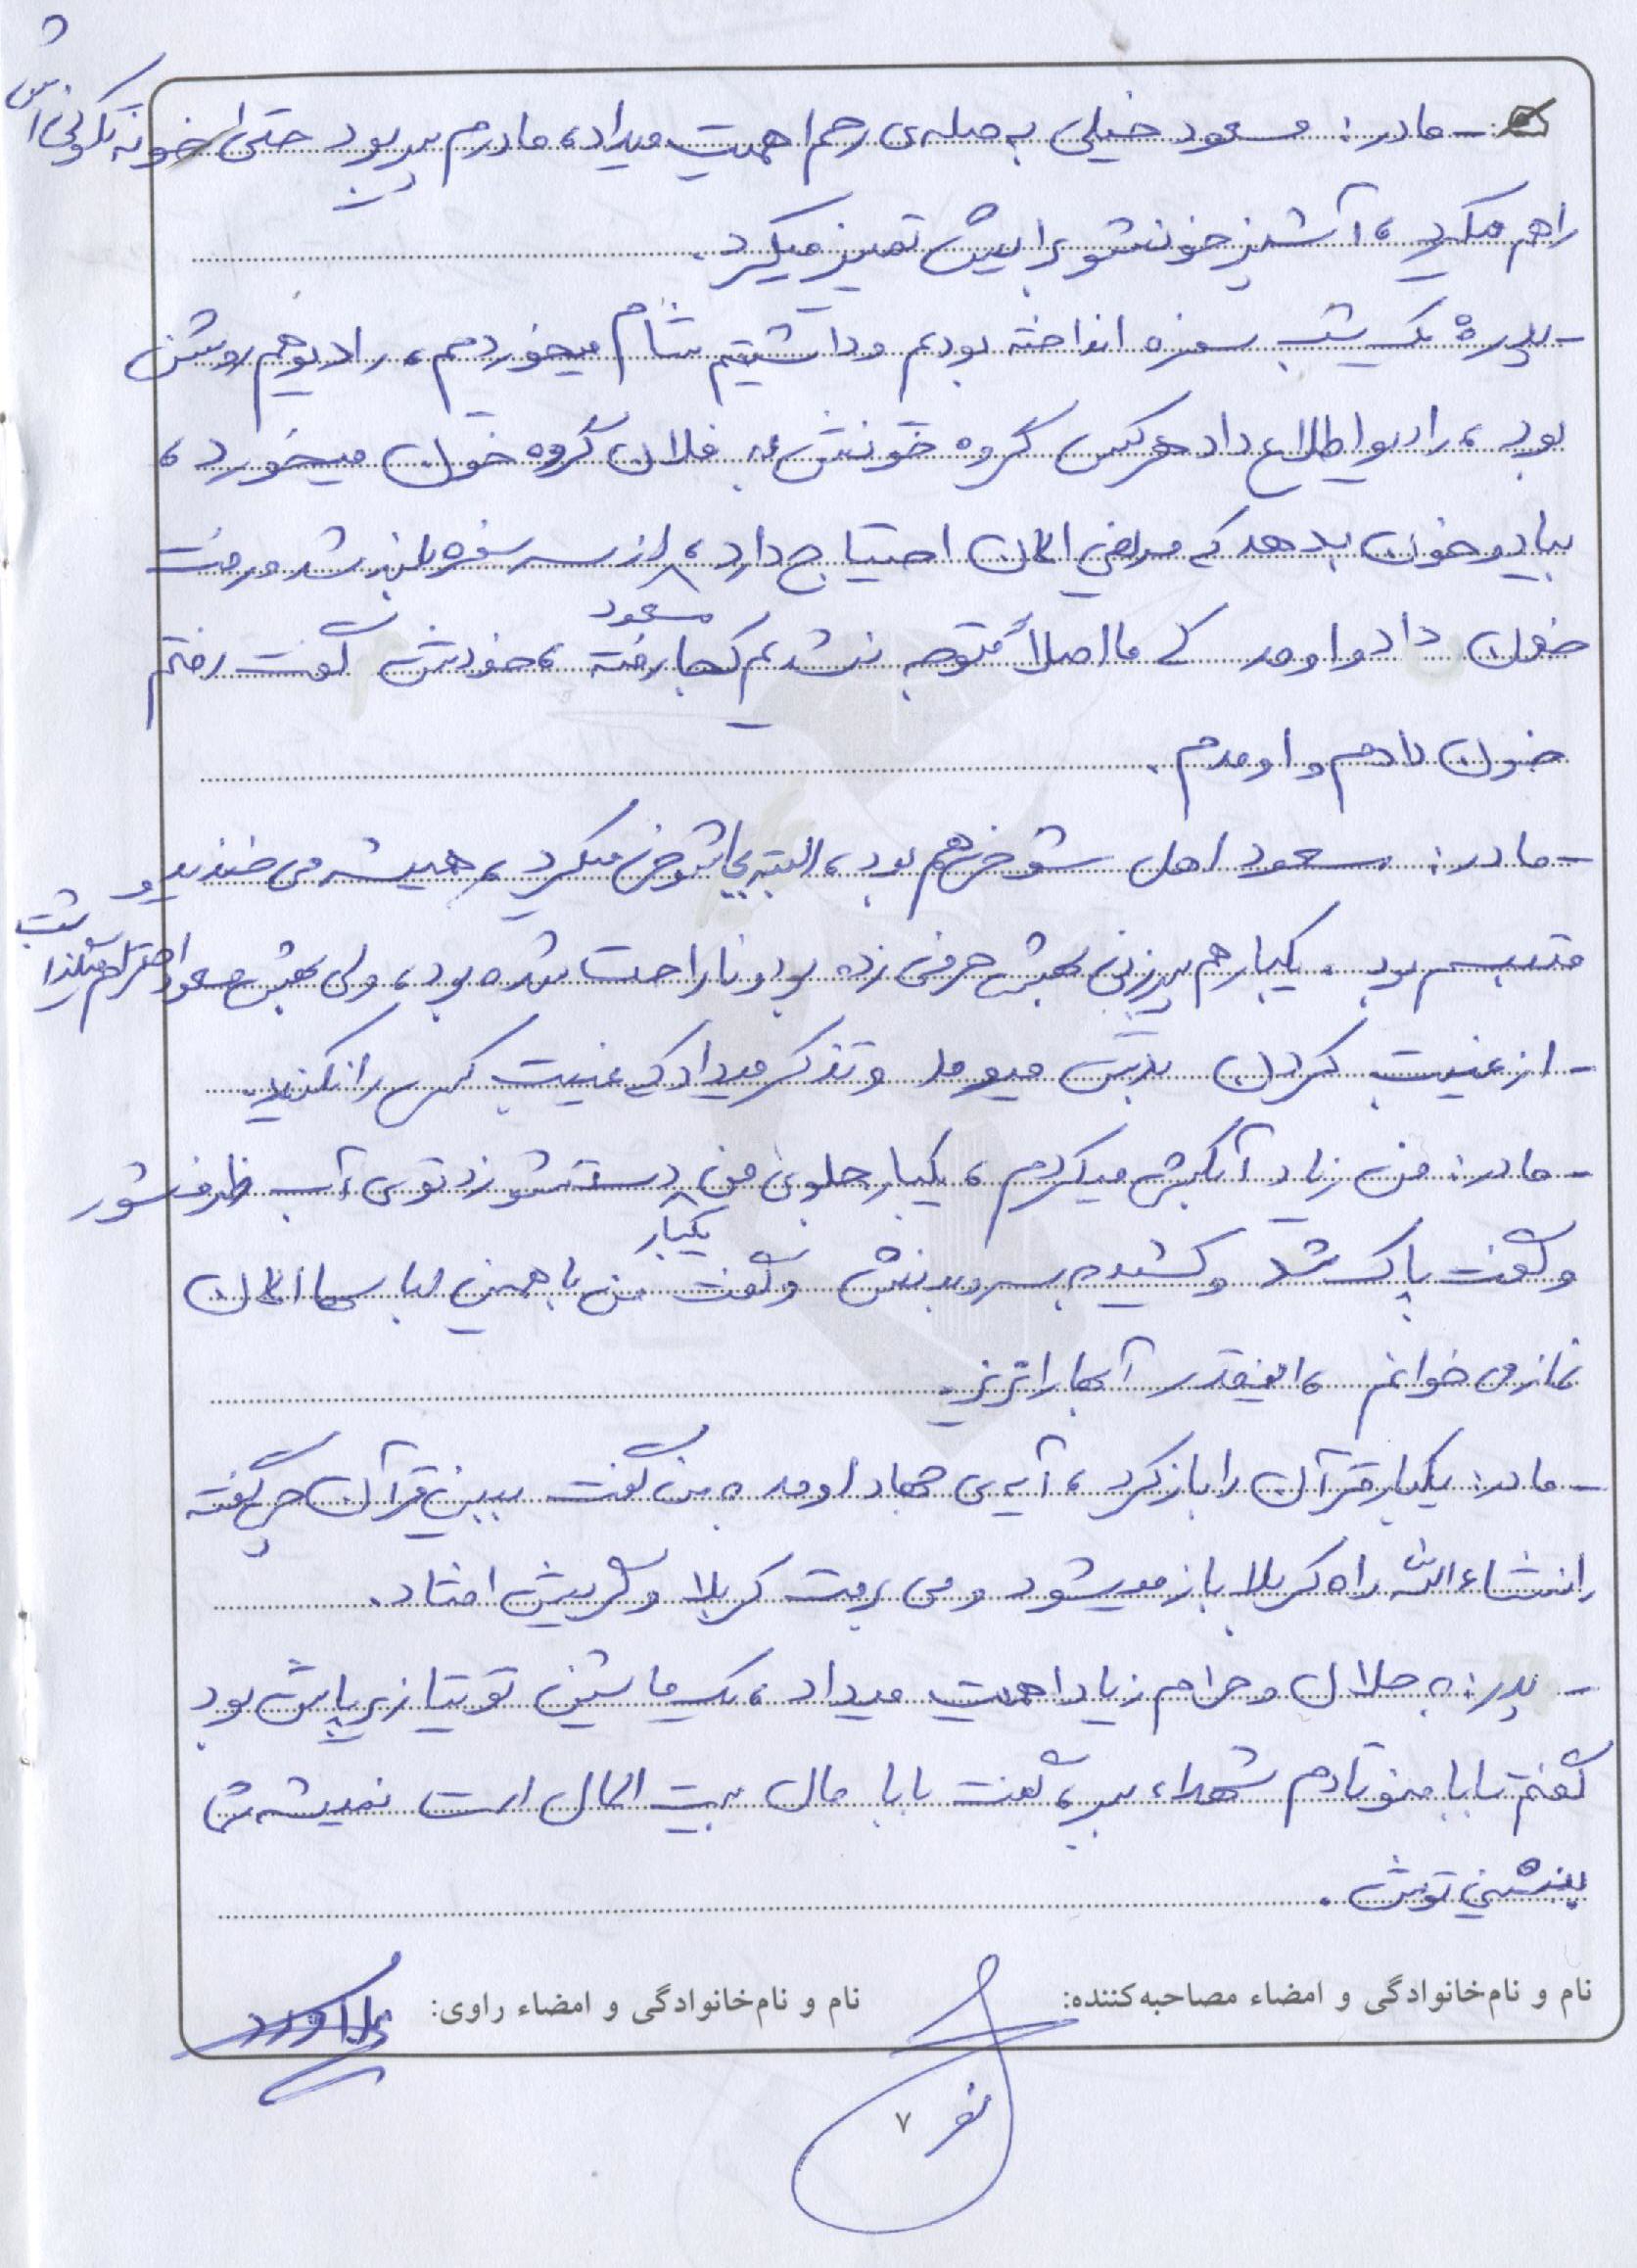 - مادر: مسعود خیلی به صله‌ی رحم اهمیت میداد، مادرم پیر بود حتی خونه تکونی اش
را هم میکرد، آشپزخونشو برایش تمیز میکرد.
- پدر: یک شب سفره انداخته بودیم و داشتیم شام میخوردیم، رادیو هم روشن
بود، رادیو اطلاع داد هرکس گروه خونش به فلان گروه خون میخورد،
بیاد و خون بدهد که مریضی الان احتیاج دارد، مسعود از سر سفره بلند شد و رفت
خون داد و اومد که ما اصلاً متوجه نشدیم کجا رفته، خودش گفت رفتم
خون دادم و اومدم.
- مادر: مسعود اهل شوخی هم بود، البته بجا شوخی میکرد، همیشه می خندید و
متبسم بود. یکبار هم پیرزنی بهش حرفی زده بود و ناراحت شده بود، ولی بهش مسعود احترام میذاشت
- از غیبت کردن بدش میومد و تذکر میداد که غیبت کسی را نکنید.
- مادر: من زیاد آبکشی میکردم، یکبار جلوی من یکبار دستشو زد توی آب ظرفشور
و گفت پاک شد و کشید به سر و بدنش و گفت من با همین لباسها الان
نماز می خوانم، اینقدر آبها را نریز.
- مادر: یکبار قرآن را باز کرد، آیه ی جهاد اومد به من گفت ببین قرآن چی گفته
انشاءالله راه کربلا باز میشود و می برمت کربلا و گریش افتاد.
- پدر: به حلال و حرام زیاد اهمیت میداد، یک ماشین تویتا زیر پاش بود
گفتم بابا منو تا دم شهداء ببر، گفت بابا مال بیت المال است نمیشه شما
بنشینی توش.
نام و نام‌خانوادگی و امضاء مصاحبه‌کننده:
نام و نام‌خانوادگی و امضاء راوی:
۷